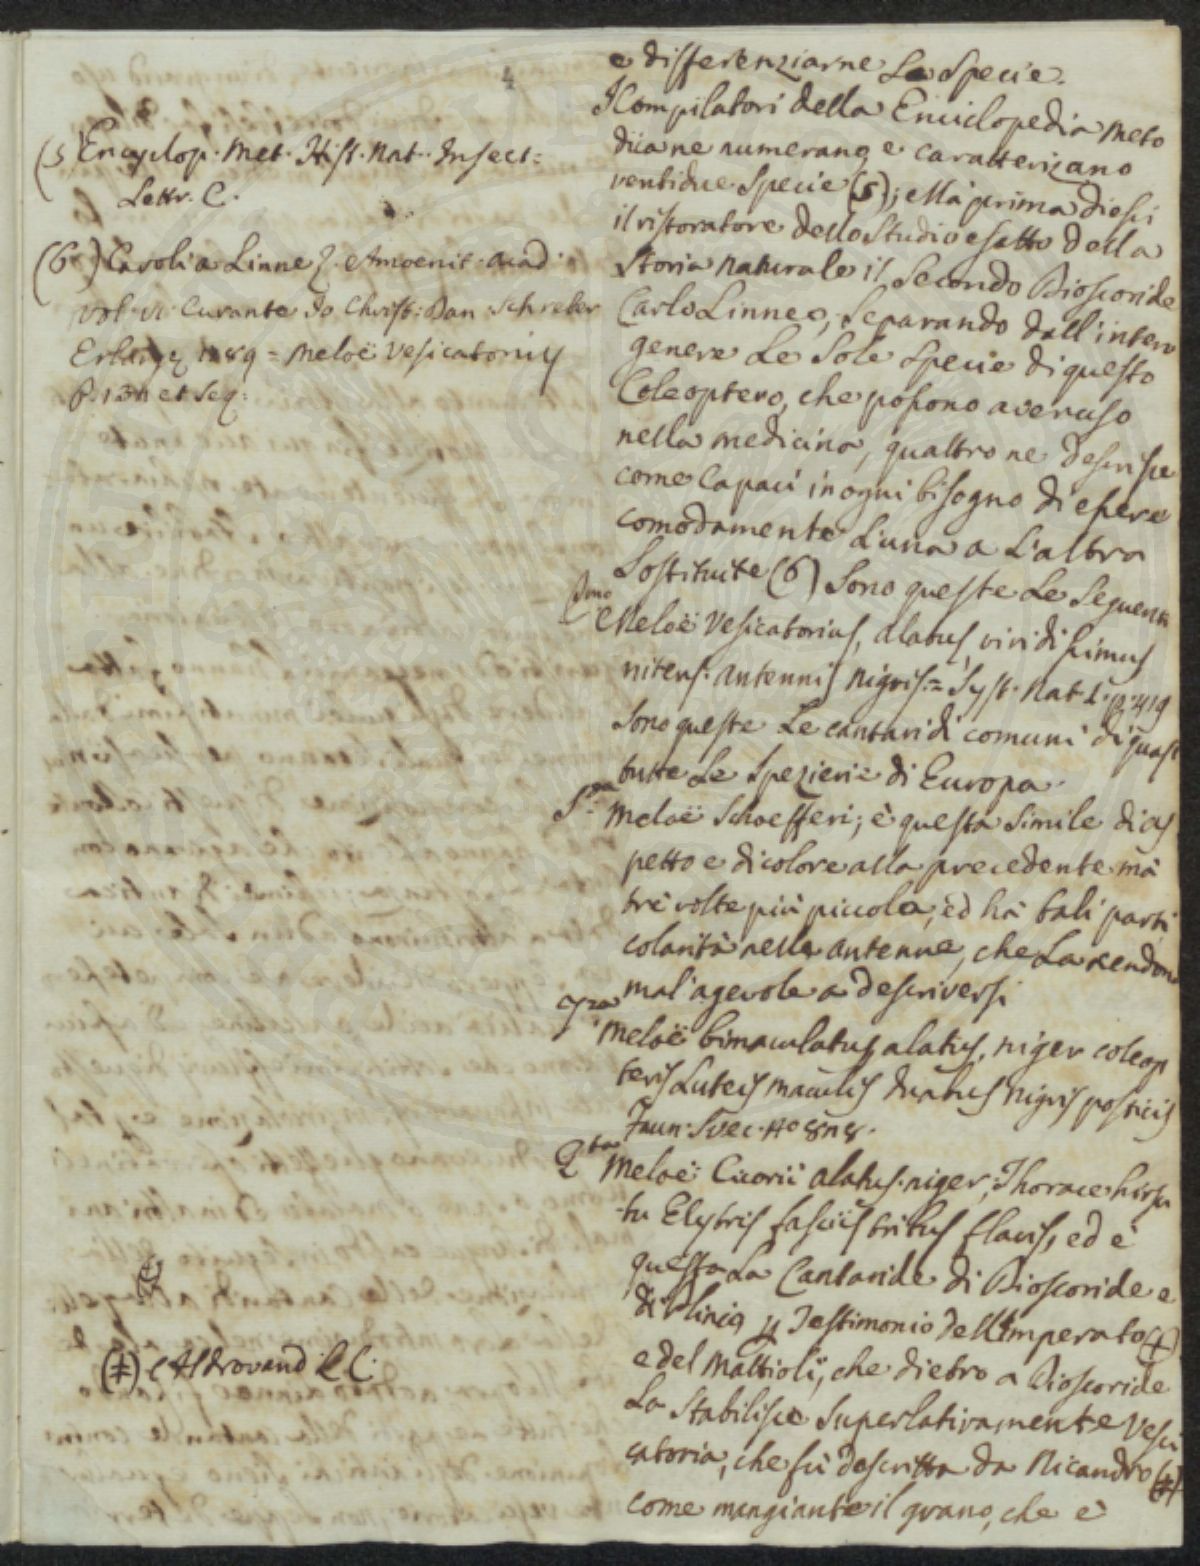 4
(5 Encyclop. Met. Hist. Nat. Insect=
Lettr. C.
(6) Caroli a Linne Amoenit. Acad.
vol. VI. Curante Jo Christ: Dan: Schreber
Erlangæ 1789 = Meloë Vesicatorius
p. 132 et Seq:
(‡) Aldrovand L C.
e differenziarne Le Specie.
I Compilatori della Enciclopedia meto
dica ne numerano e caratterizano
ventidue Specie (5); Mà prima di essi
il ristoratore dello Studio esatto della
Storia naturale il Secondo Dioscoride
Carlo Linneo, Separando dall'intero
genere Le Sole Specie di questo
Coleoptero, che possono aver uso
nella medicina, quattro ne descrisse
come Capaci in ogni bisogno di essere
comodamente L'una a L'altra
Sostituite (6) Sono queste Le Seguenti
Meloë Vesicatorius, alatus, viridissimus
nitens. antennis nigris.= Syst. Nat. p. 419
Sono queste Le cantaridi comuni di quasi
tutte Le Spezierie di Europa.
Meloë Schoefferi; è questa Simile di as
petto e di colore alla precedente mà
trè volte più piccola, ed hà tali parti
colarità nelle antenne, che La rendono
mal' agevole a descriversi
Meloë bimaculatus, alatus, niger coleop
teris Luteis maculis duabus nigris posticis
Faun. Svec. N° 828.
Meloë: Cicorii alatus. niger; Thorace hirsu
to Elytris fasciis tribus flavis, ed è
questa La Cantaride di Dioscoride e
di Plinio p Testimonio dell'Imperato (‡)
e del Mattioli, che dietro a Dioscoride
La Stabilisce Superlativamente Vesci
catoria, che fù descritta da Nicandro (‡)
come mangiante il grano, che è